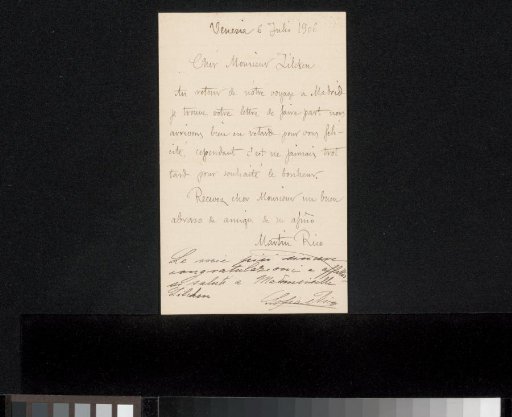 Venezia 6 Julio 1906
Cher Monsieur Zilcken
Au retour de notre voyage a Madrid
je trouve votre lettre de faire part nous
arrivons bien en retard pour vous feli-
cité, cependant c'est ne jamais trot
tard pour souhaité le bonheur.
Recevez cher Monsieur un buen
abrazo de amigo de su afmo
Martin Rico
Le mie più sincere
congratulazioni e
saluti a Mademoiselle
Zilcken